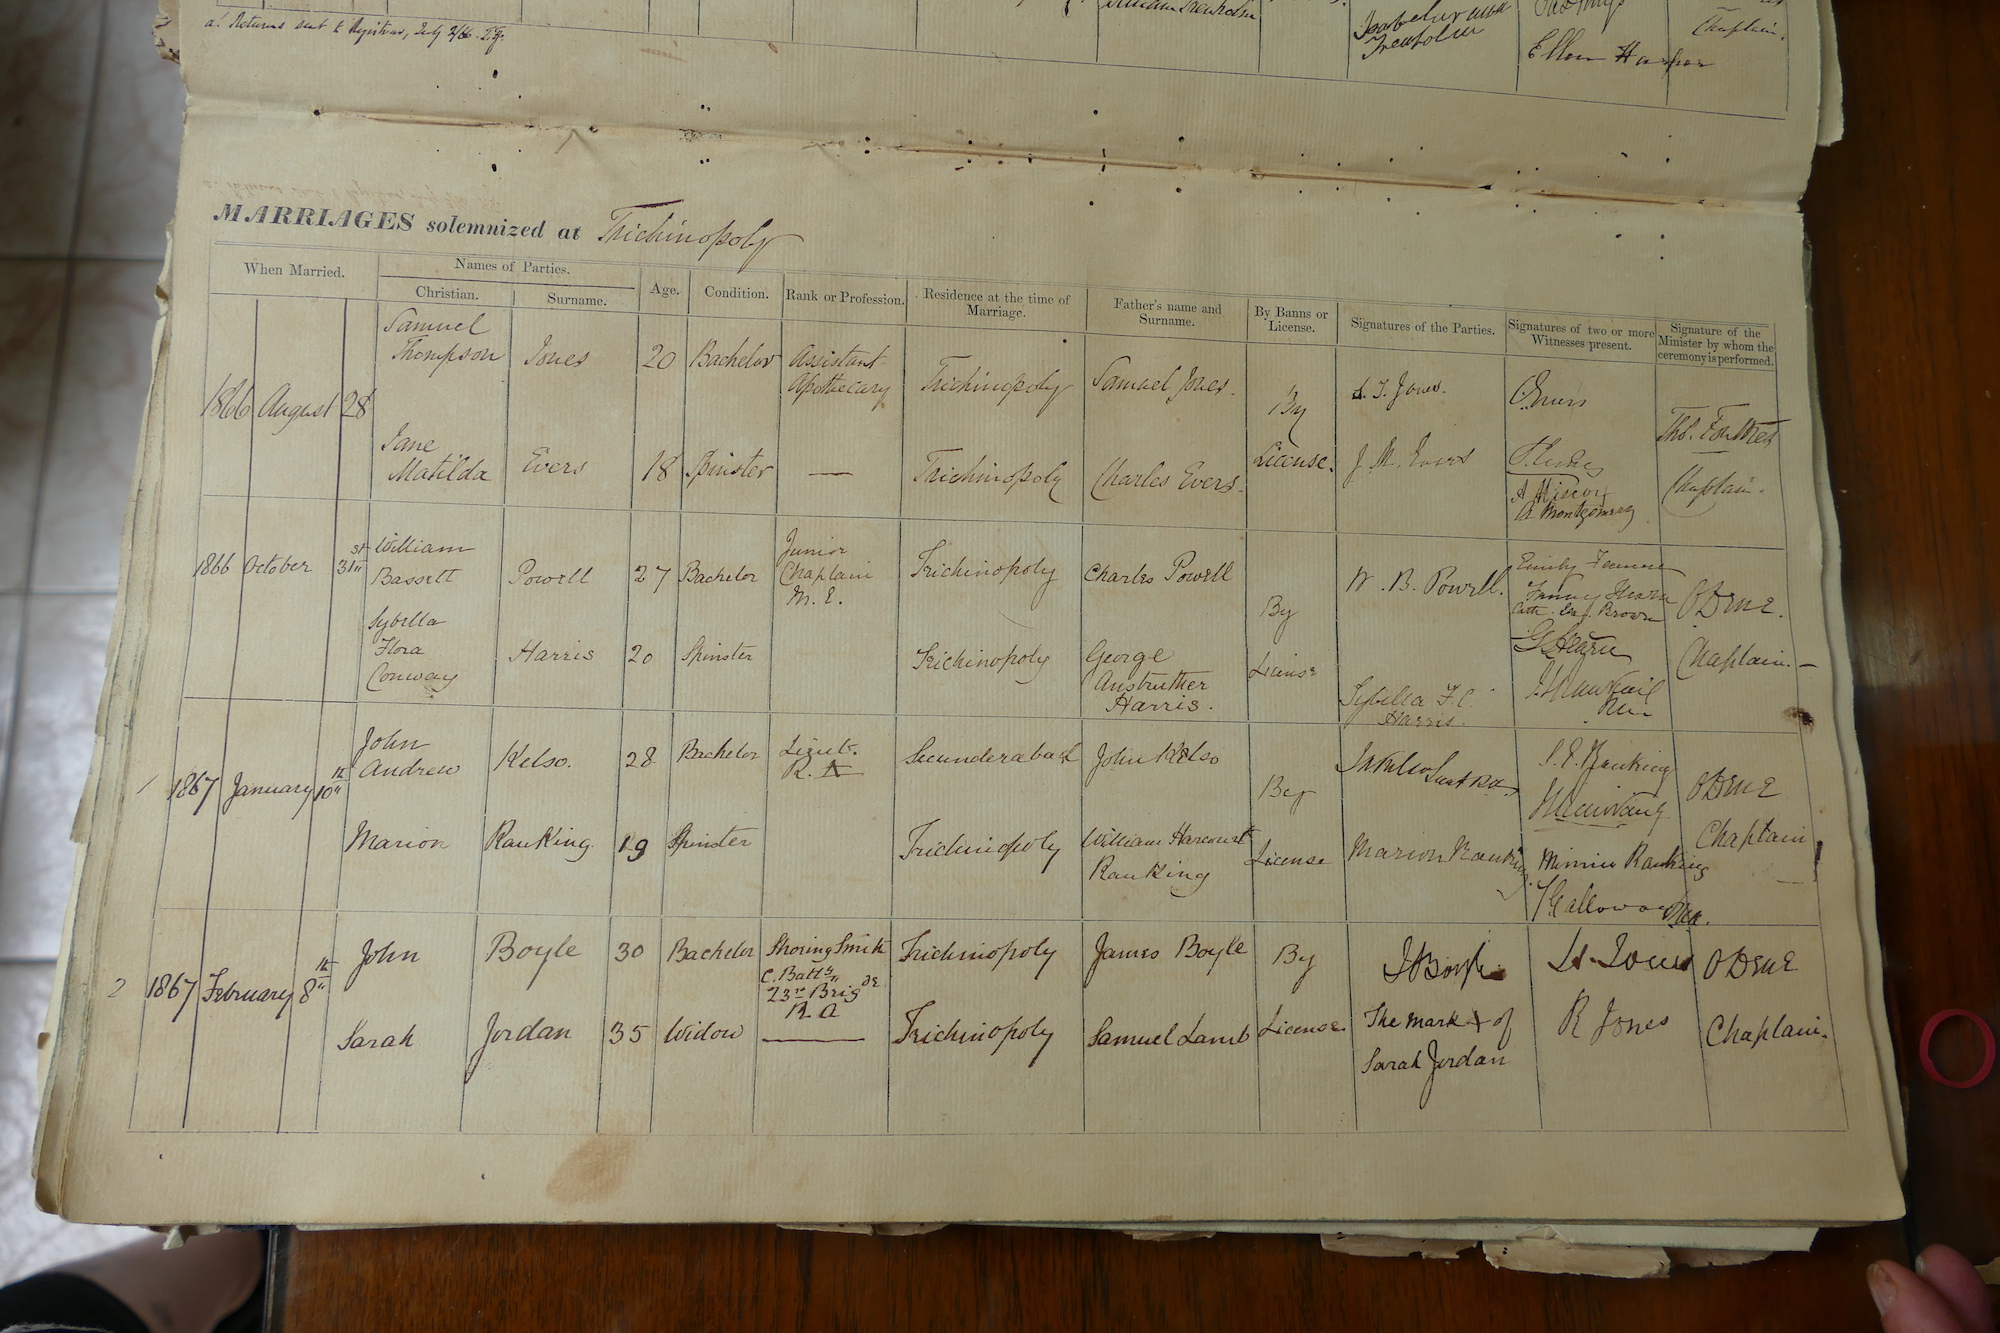 a! Returns sent to Registrar, July 2/66. T.F.
Isabella
Trenholm
Ellen Harper
Chaplain.
MARRIAGES solemnized at Trichinopoly
When Married.
Names of Parties.
Christian.
Surname.
Age.
Condition.
Rank or Profession.
Residence at the time of Marriage.
Father's name and Surname.
By Banns or License.
Signatures of the Parties.
Signatures of two or more Witnesses present.
Signature of the Minister by whom the ceremony is performed.
1866 August 28
Samuel Thompson Jones 20 Bachelor Assistant Apothecary Trichinopoly Samuel Jones. S. T. Jones. C Evers
By License.
Jane Matilda Evers 18 Spinster — Trichinopoly Charles Evers. J. M. Evers
A Montgomery
Thos. Foulkes
Chaplain.
1866 October 31st
William Bassett Powell 27 Bachelor Junior Chaplain M. E. Trichinopoly Charles Powell W. B. Powell.
By License
Sybella Flora Conway Harris 20 Spinster Trichinopoly George Anstruther Harris. Sybella F. C. Harris.
Fanny Hearn
Brown
G Hearn
Chaplain.—
1 1867 January 10th
John Andrew Kelso. 28 Bachelor Lieut. R. A Secunderabad John Kelso
By License
Marion Ranking. 19 Spinster Trichinopoly William Harcourt Ranking Marion Ranking
Minnie Ranking
Galloway
Chaplain
2 1867 February 8th
John Boyle 30 Bachelor Shoring Smith C. Batty 23rd Brigde R. A Trichinopoly James Boyle J Boyle
By License.
Sarah Jordan 35 Widow — Trichinopoly Samuel Lamb The mark + of Sarah Jordan
R Jones
Chaplain.